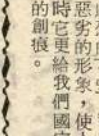 惡劣的形象，使
時它更給我們國
的創痕。